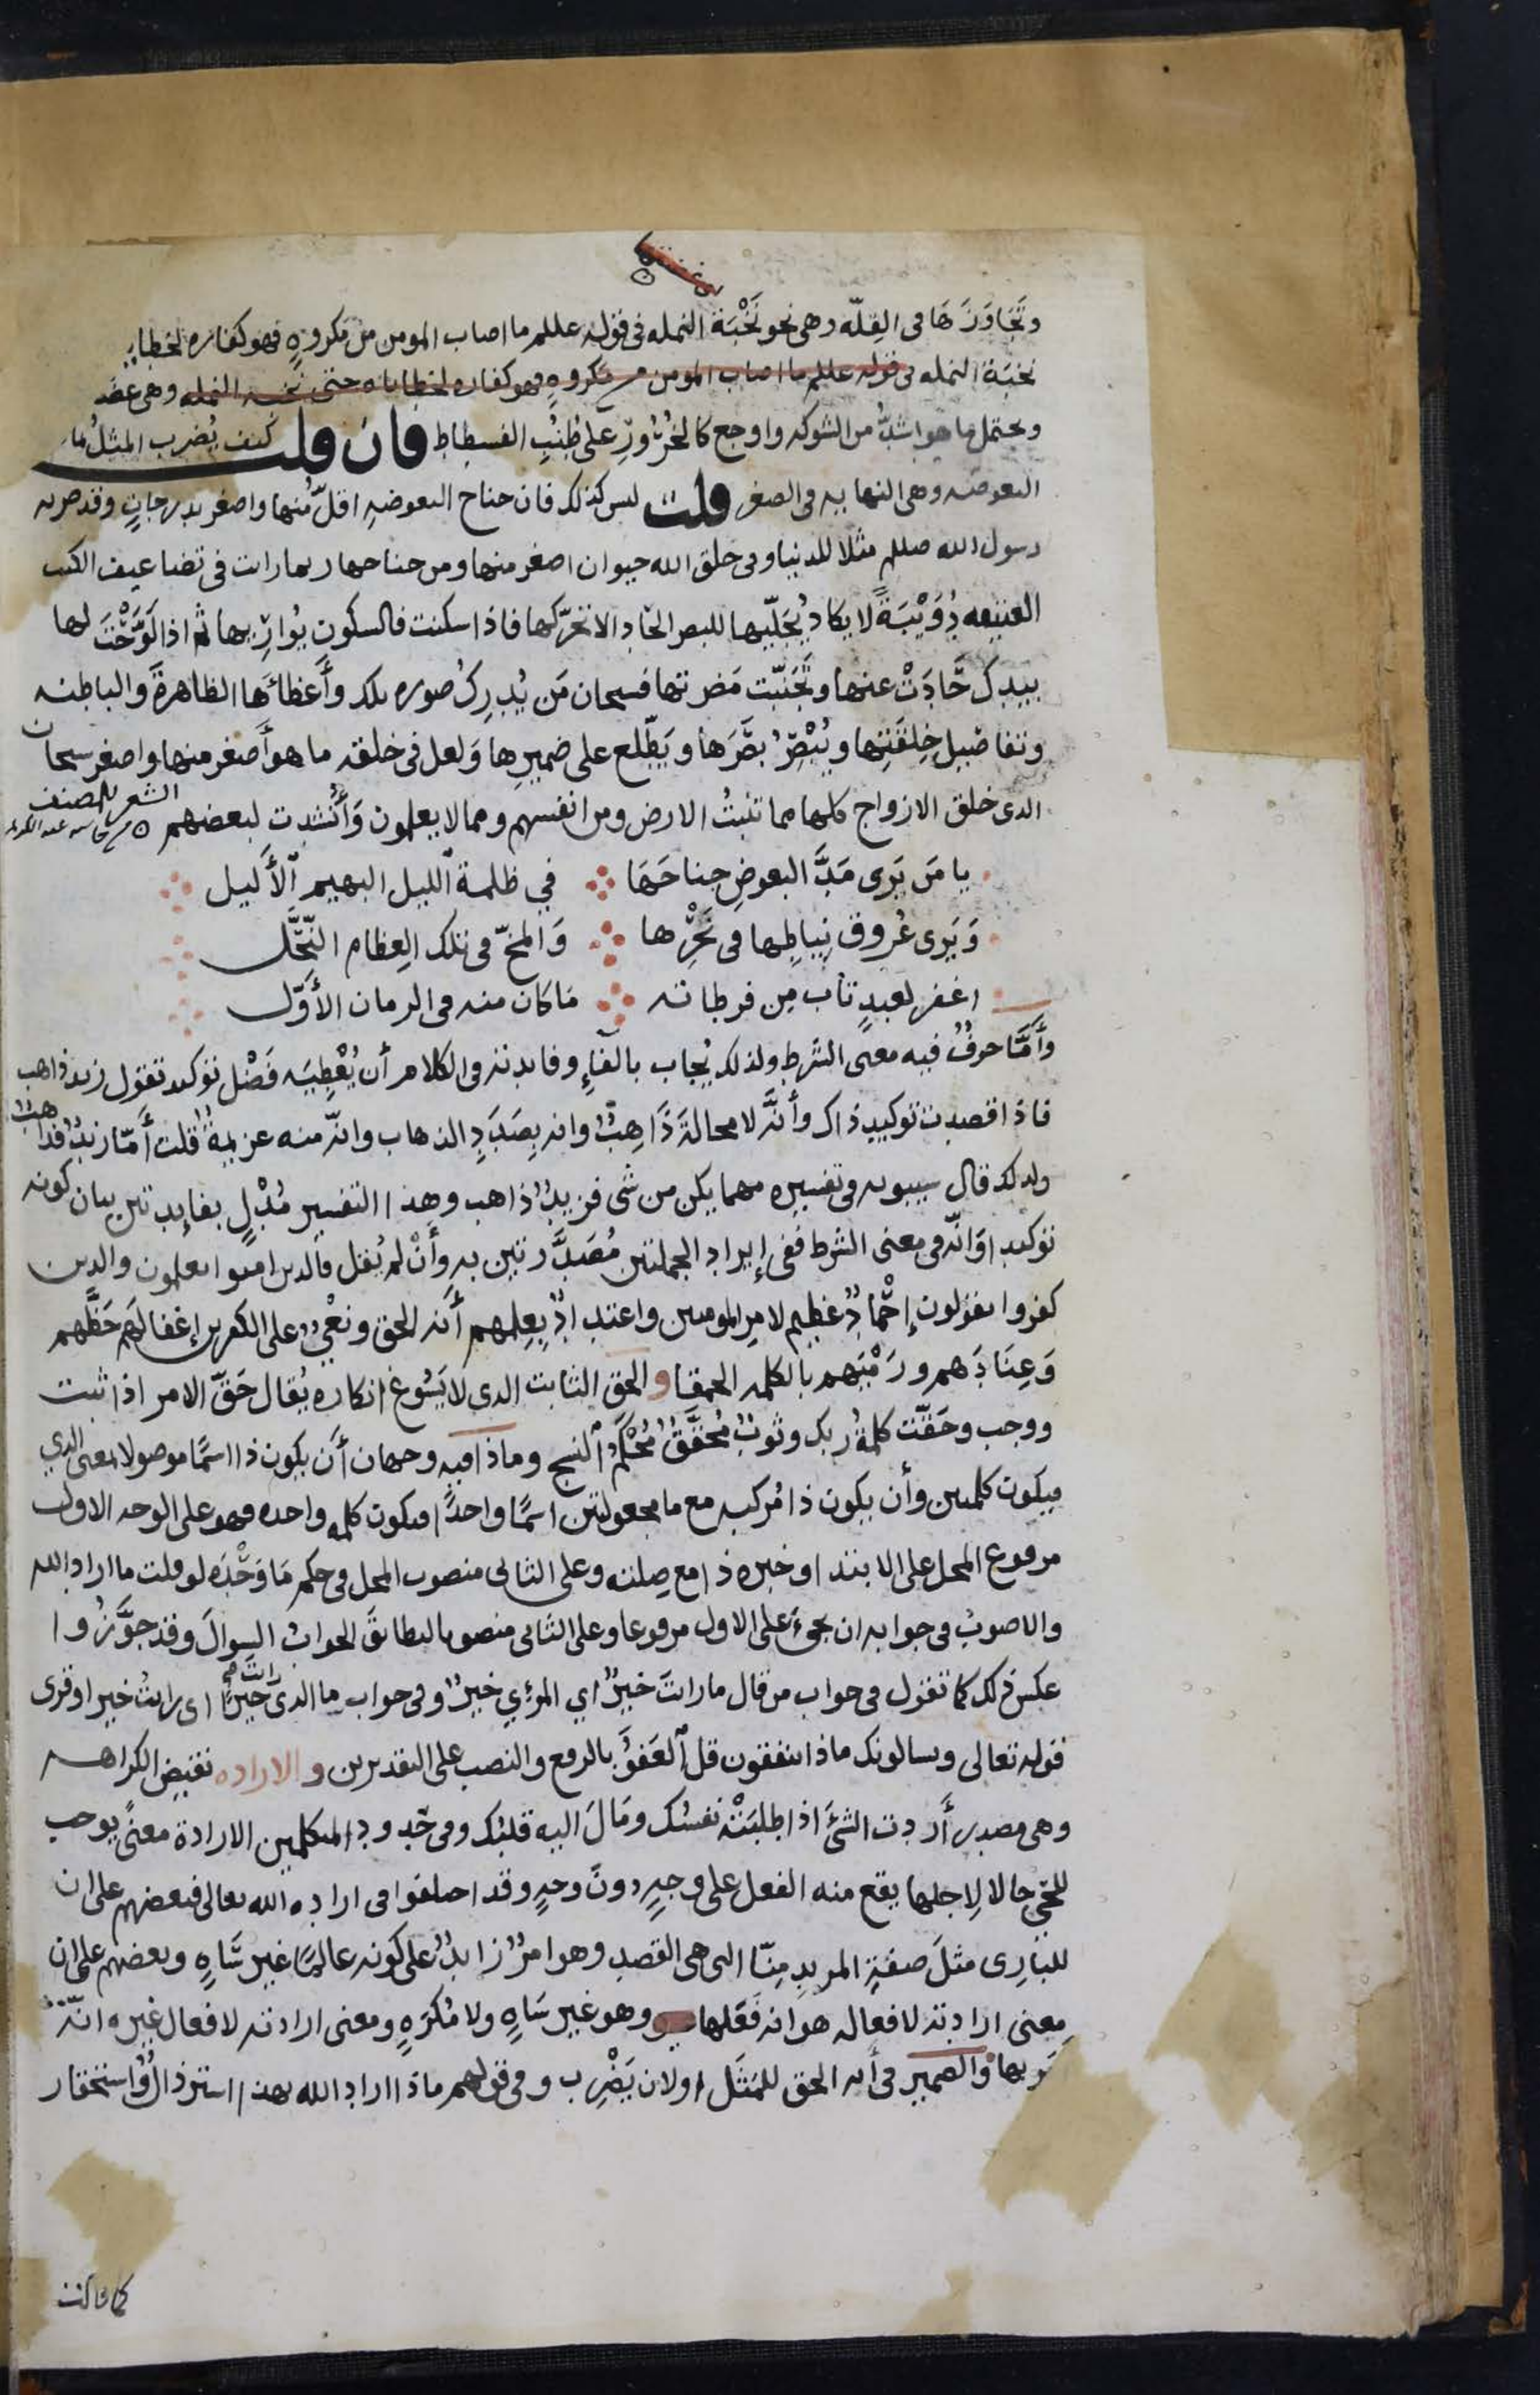 وتَجَاوَزَهَا فى القِلّه وهى نحو نَخْبَة النمله فى قوله عللم ما اصاب المومن من مكروهٍ فهو كفاره لخطاياه
نخبَة النمله فى قوله عللم ما اصاب المومن من مكروهٍ فهو كفاره لخطاياه حتى نخبه النمله وهى عضه
ويحتمل ما هو اشدُّ من الشوكه واوجع كالخُرُورِ على طُنُبِ الفسطاط فان قلت كيف يُضرب المثلُ بما
البعوضه وهى النهايه فى الصغر قلت ليس كذلك فان جناح البعوضهِ اقلّ منها واصغر بدرجاتٍ وقد ضربه
رسول الله صللم مثلا للدنيا وفى خلق الله حيوان اصغر منها ومن جناحها ربما رايت فى تضاعيف الكتب
العتيقه دُوَيْبَةً لا يكادُ يُجَلِّيها للبصر الحاد الا تحرّكها فاذا سكنت فالسكون يُوارِيها ثم اذا لَوَّحْتَ لها
بيدك حَادَتْ عنها وتَجَنَّبَت مَضرتها فسبحان مَن يُدرِكُ صوره تلك وأَعْضائَها الظاهرةَ والباطنه
وتفاصيلِ خِلقَتِها ويُبْصِرُ بصَرَها ويَطّلع على ضميرِها وَلعل فى خلقه ما هو أَصغر منها واصغر سبحان
الذى خلق الازواج كلها مما تنبتُ الارض ومن انفسهم ومما لا يعلمون وَأُنْشِدت لبعضهم
الشعر للمصنف
يا مَن يَرى مَدَّ البعوضِ جناحَهَا في ظلمة ٱلليل البهيم ٱلأَليل
وَيَرى عُروق نِياطِها فى نَحْرِها وَالمخّ فى تلك العِظام النُّحَّل
اغفر لعبدٍ تابَ مِن فرطاته مَا كان منه فى الزمان الأَوّل
وأَمَّا حرفٌ فيه معنى الشرط ولذلك يُجاب بالفآءِ وفايدته فى الكلام أن يُعْطِيَه فَضْل توكيد تقول زيد ذاهب
فاذا قصدت توكيد ذاك وأَنَّه لا محالةَ ذَاهِبٌ وانه بِصَدَدِ الذهاب وانّه منه عزيمةٌ قلت أَمّا زيدٌ فذاهبٌ
ولذلك قال سيبويه فى تفسيره مهما يكن من شى فزيدٌ ذاهب وهذا التفسير مُدْلٍ بفايدتين بيان كونه
توكيدا وَانّه فى معنى الشرط ففى إيراد الجملتين مُصَدَّرتين به وأَنْ لم يُقل فالذين امنوا يعلمون والذين
كفروا يقولون إحْمادٌ عظيم لامرِ المومنين واعتدادٌ بِعِلمهم أَنه الحق ونَعْىٌ على الكفرين إغفالَهم حَظَّهم
وَعِنَادَهم ورَمْيَهم بالكلمه الحمقا والحق الثابت الذى لا يَسُوغ انكاره يُقال حَقّ الامر اذا ثبت
ووجب وحَقّت كلمةُ ربك وثوبٌ مُحَقَّقٌ مُحْكَمُ ٱلنسج وماذا فيه وجهان أَن يكون ذا اسمًا موصولا بمعنى الذي
فيكون كلمتين وأن يكون ذا مُركبه مع ما مجعولتين اسمًا واحدًا فيكون كلمه واحده فهو على الوجه الاول
مرفوع المحل على الابتدا وخبره ذا مع صِلته وعلى الثانى منصوب المحل فى حكم مَا وَحْدَه لو قلت ما اراد الله
والاصوبُ فى جوابه ان يجىءَ على الاول مرفوعا وعلى الثانى منصوبا ليطابقَ الجوابُ السوالَ وقد جوَّزُوا
عكسَ ذلك كما تقول فى جواب من قال ما رايتَ خيرٌ اي المرئي خيرٌ وفى جواب ما الذى رايتَ خيرًا اى رايتُ خيرا وقرى
قوله تعالى ويسالونك ماذا ينفقون قل ٱلعَفوُ بالرفع والنصب على التقديرين والاراده نقيض الكراهه
وهى مصدر أَردت الشئَ اذا طلبَتْه نفسُك ومَالَ اليه قلبُك وفى حُدود المتكلمين الارادة معنًى يوجب
للحَىّ حالا لِاجلها يقع منه الفعل على وجهٍ دونَ وجهٍ وقد اختلفوا فى اراده الله تعالى فبعضهم على ان
للبَارِى مثلَ صفةِ المريدِ مِنّا التى هى القصد وهو امرٌ زايدٌ على كونه عالمًا غير سَاهٍ وبعضهم على ان
معنى ارادته لافعاله هو انه فَعَلها وهو غير سَاهٍ ولا مُكرَهٍ ومعنى ارادته لافعال غيره انّه
بها والضمير فى أَنه الحق للمَثَل اولان يَضْرِب وفى قولهم ماذا اراد الله بهذا استرذالٌ واستحقار
كما قالت